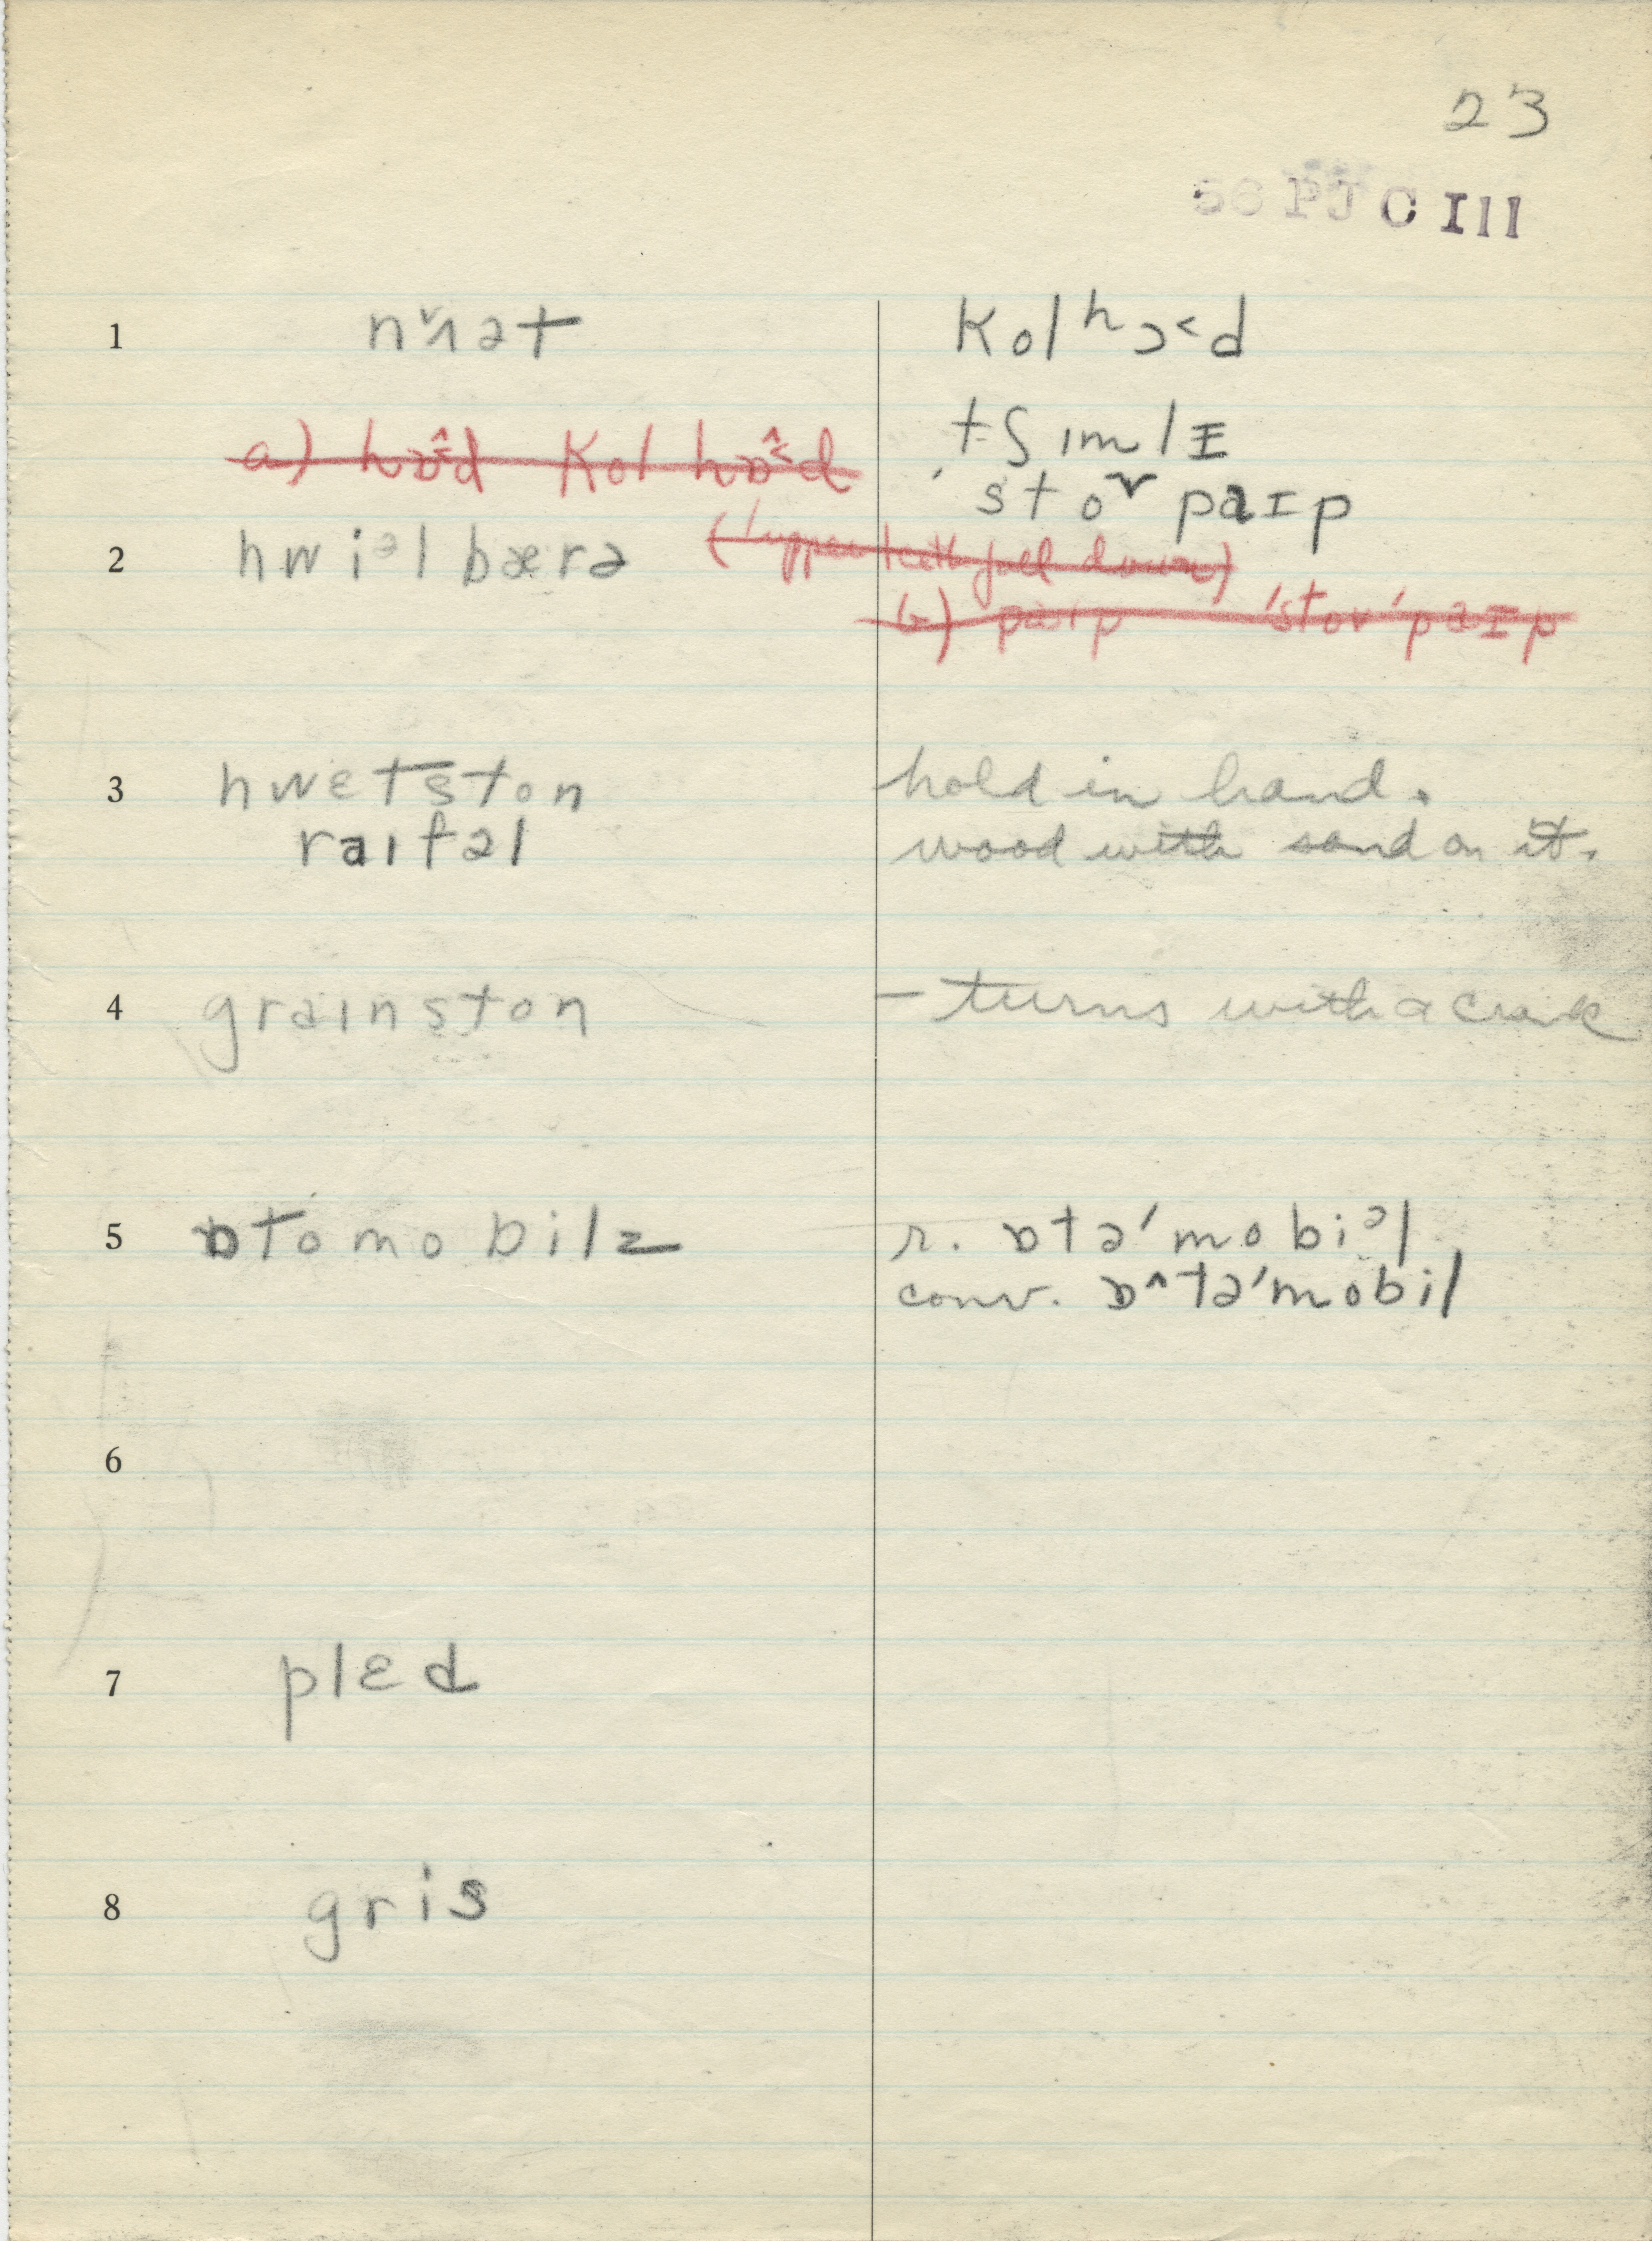 23
56 PJ C III
1 Kolʰɔ˂d
tʃɪmlI
a) hɒ˂̂d Kol hɒ˂̂d
'stoʳ paɪp
2 hwiᵊl bærə
(upper teeth fall down)
b) paɪp 'stov'paɪp
3 hwɛtston hold in hand.
raɪfəl wood with sand on it.
4 graɪnston - turns with a crank
5 ɒtomobilz r. ɒtə'mobiᵊl,
conv. ɒ^tə'mobil
6
7 plɛd
8 gris